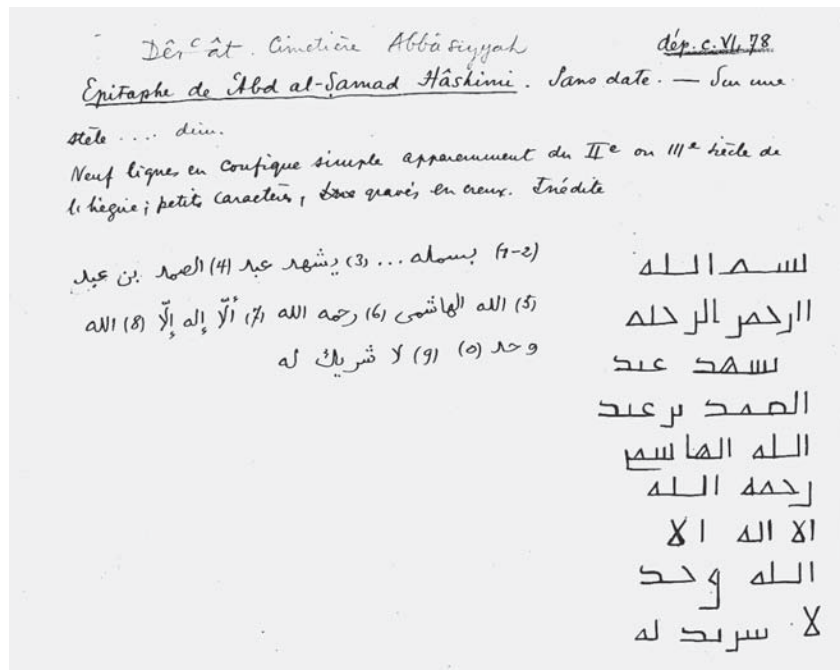 Dêrᶜât. Cimetière Abbâsiyyah
dép. c. VI, 78
Epitaphe de ʿAbd al-Ṣamad Hâshimi. Sans date. — Sur une
stèle .... dim.
Neuf lignes en coufique simple apparemment du IIe ou IIIe siècle de
l'hégire; petits caractères, gravés en creux. Inédite
(1-2) بسمله ... (3) يشهد عبد (4) الصمد بن عبد
(5) الله الهاشمى (6) رحمه الله (7) ألّا إله إلّا (8) الله
وحد (ه) (9) لا شريك له
بسم الله
الرحمن الرحيم
يشهد عبد
الصمد بن عبد
الله الهاشمى
رحمه الله
الا اله الا
الله وحد
لا شريك له